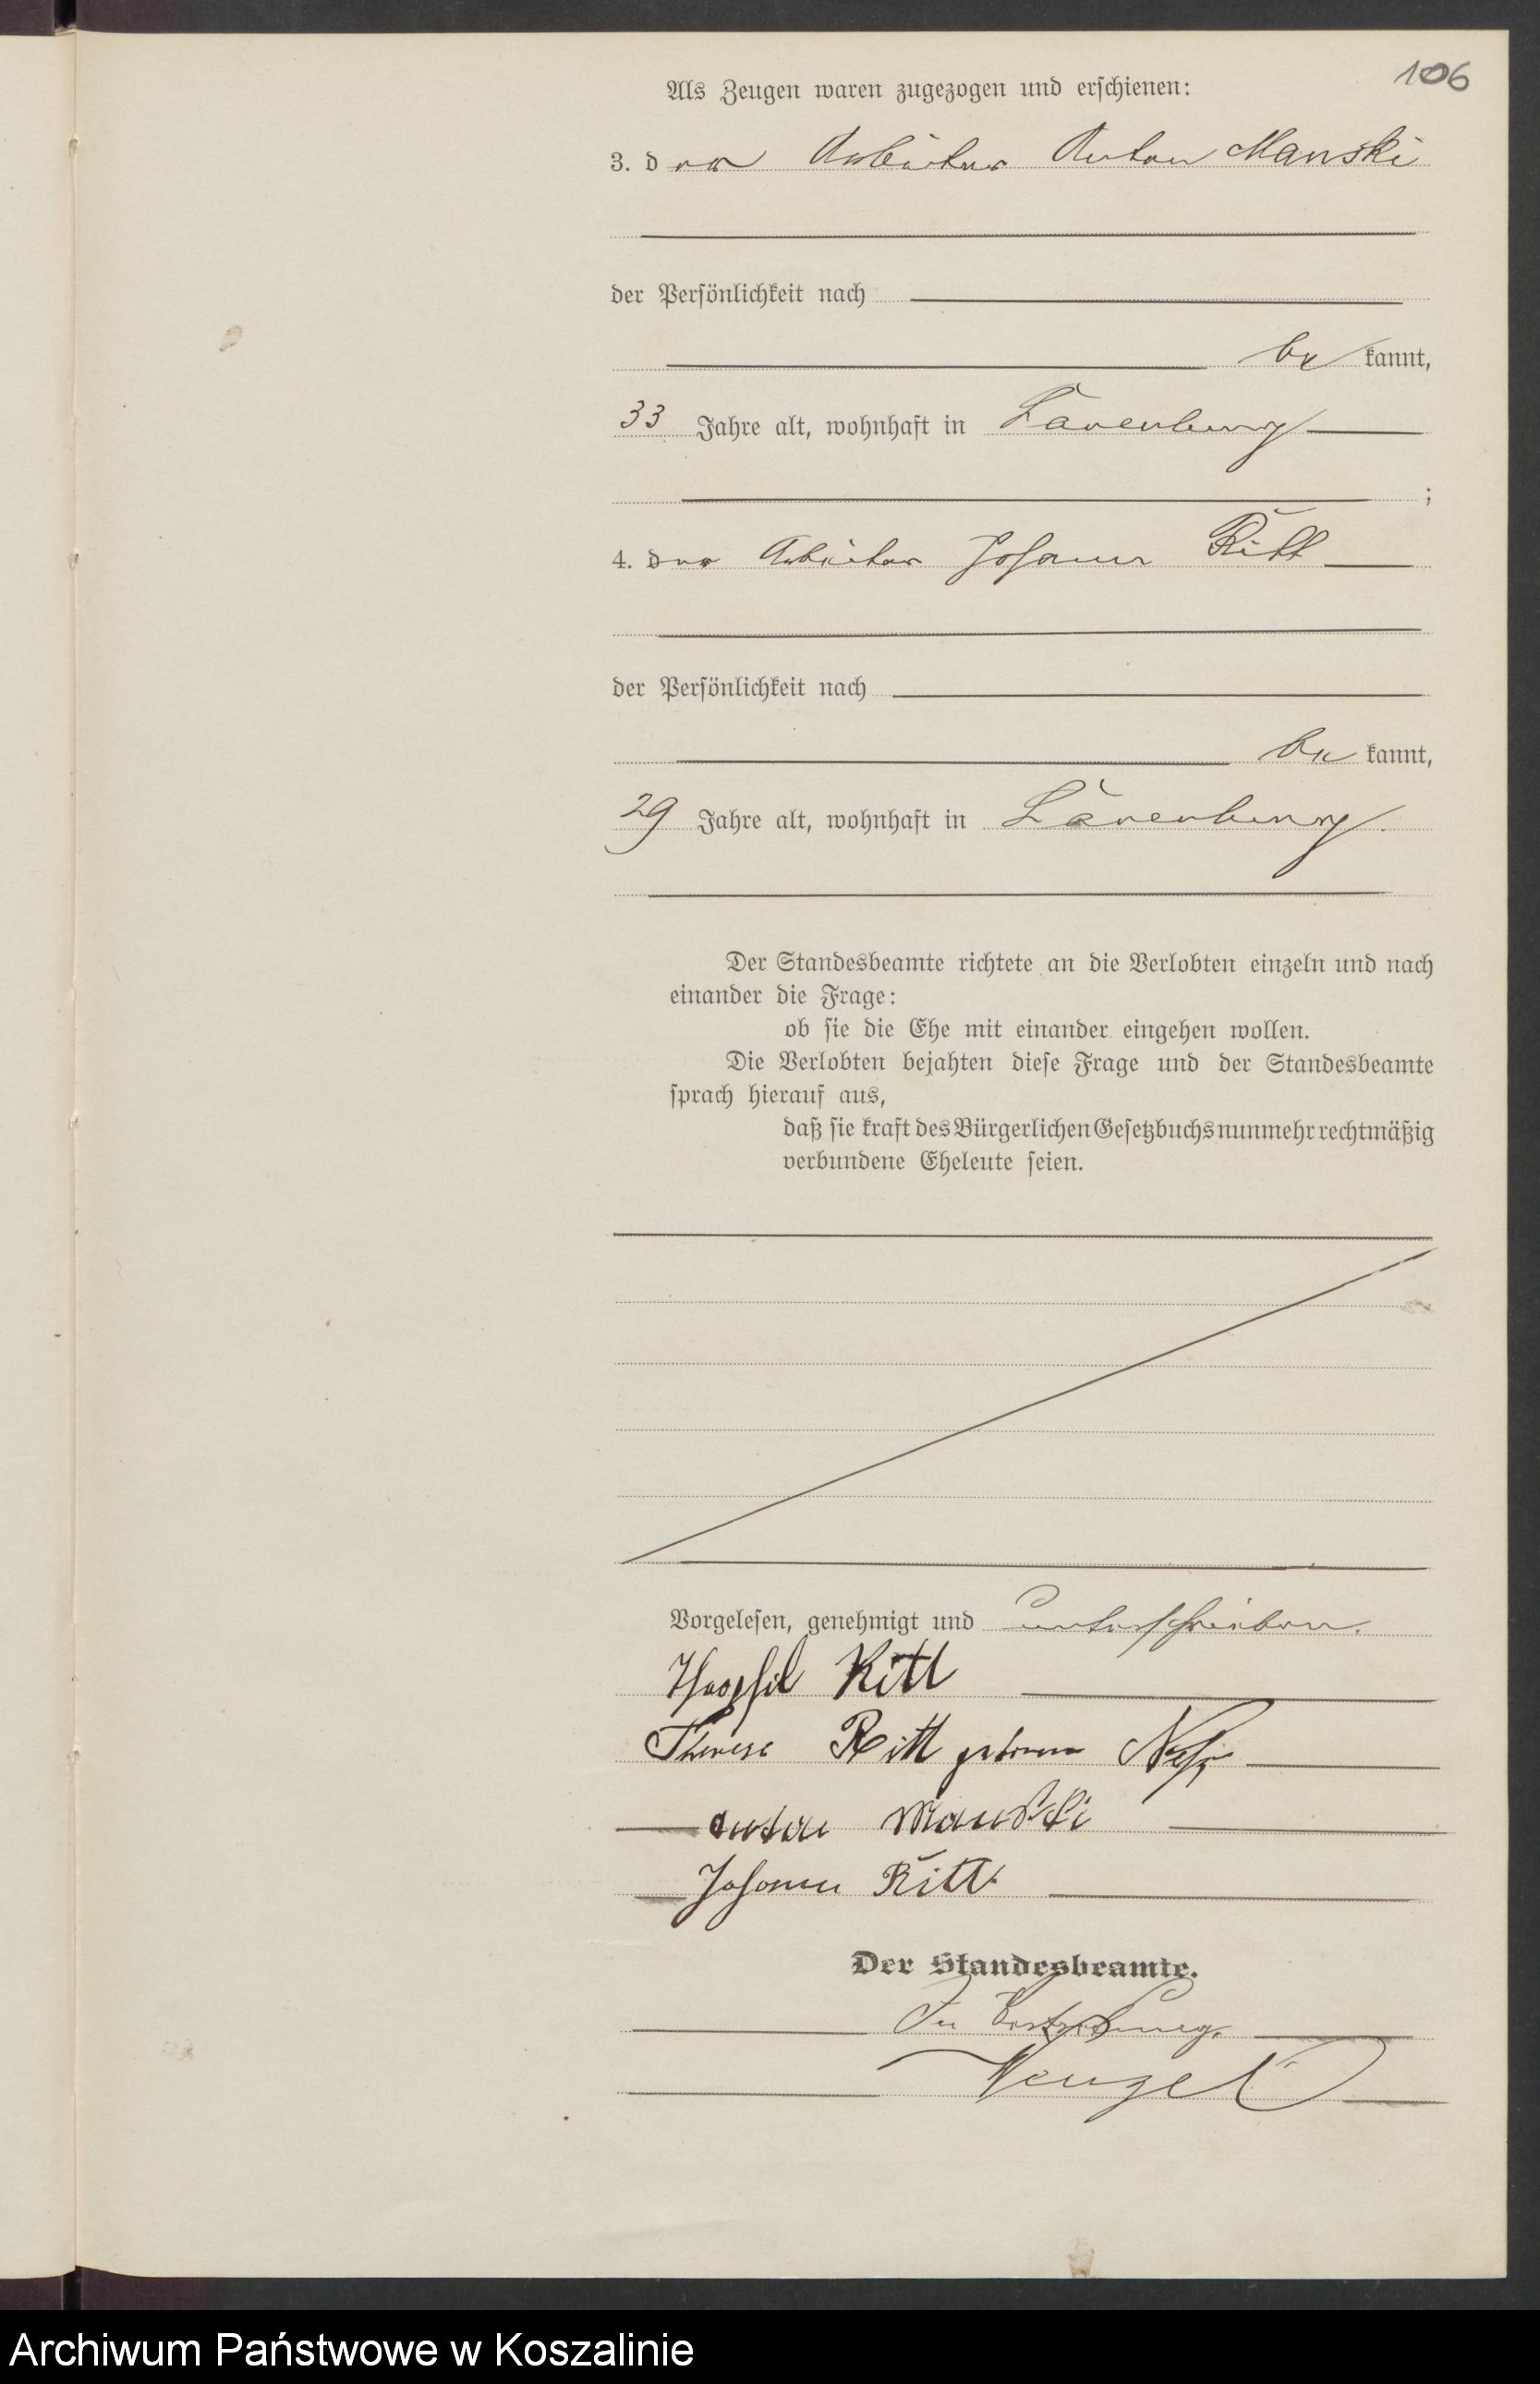 106
Als Zeugen waren zugezogen und erschienen:
3. der Arbeiter Anton Manski
der Persönlichkeit nach
be kannt,
33 Jahre alt, wohnhaft in Lauenburg
;
4. der Arbeiter Johann Ritt
der Persönlichkeit nach
be kannt,
29 Jahre alt, wohnhaft in Lauenburg.
Der Standesbeamte richtete an die Verlobten einzeln und nach
einander die Frage:
ob sie die Ehe mit einander eingehen wollen.
Die Verlobten bejahten diese Frage und der Standesbeamte
sprach hierauf aus,
daß sie kraft des Bürgerlichen Gesetzbuchs nunmehr rechtmäßig
verbundene Eheleute seien.
Vorgelesen, genehmigt und unterschrieben.
Theophil Ritt
Therese Ritt geborene
Anton Manski
Johann Ritt
Der Standesbeamte.
In Vertretung.
Wenzel
Archiwum Państwowe w Koszalinie